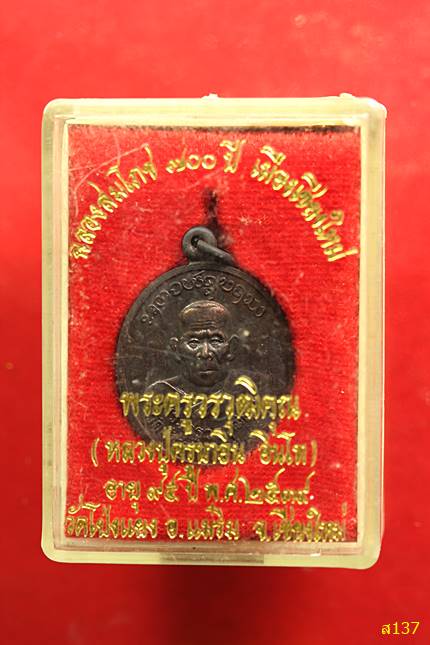 ฉลองสมโภช ๗๐๐ ปี เมืองเชียงใหม่
พระครูวรวุฒิคุณ
(หลวงปู่ครูบาอิน อินฺโท)
อายุ ๙๕ ปี พ.ศ.๒๕๓๙
อ.แม่ริม จ.เชียงใหม่
ส137